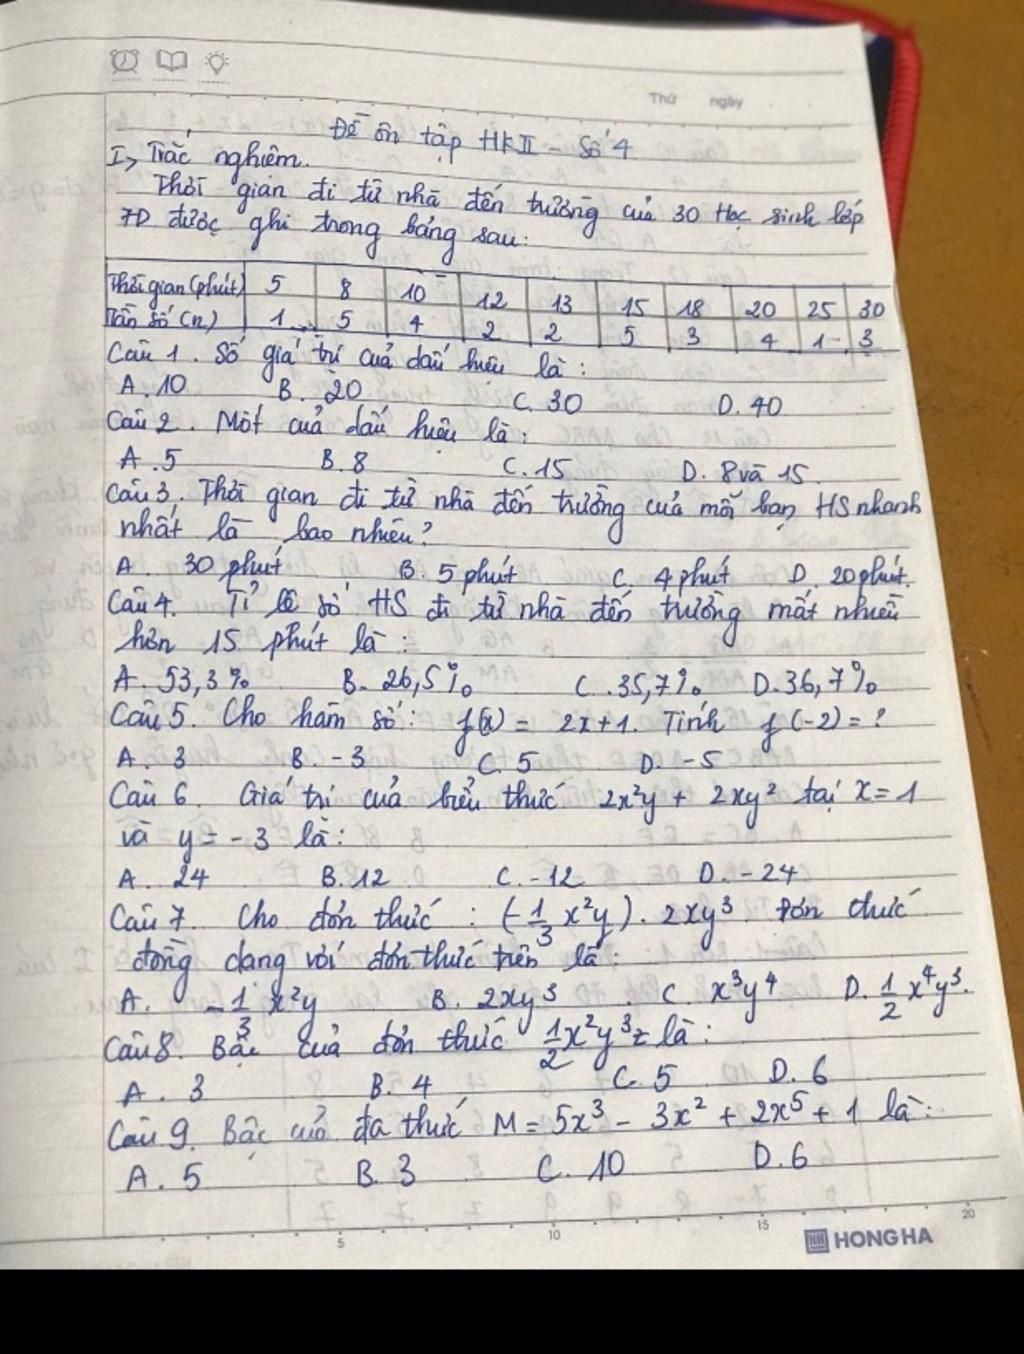 Thứ ngày
Đề ôn tập HKII - Số 4
I, Trắc nghiệm.
Thời gian đi từ nhà đến trường của 30 Học sinh lớp
7D được ghi trong bảng sau:
Thời gian (phút) 5 8 10 12 13 15 18 20 25 30
Tần số (n) 1 5 4 2 2 5 3 4 1 3
Câu 1. Số giá trị của dấu hiệu là:
A. 10 B. 20 C. 30 D. 40
Câu 2. Mốt của dấu hiệu là:
A. 5 B. 8 C. 15 D. 8 và 15
Câu 3. Thời gian đi từ nhà đến trường của mỗi bạn HS nhanh
nhất là bao nhiêu?
A. 30 phút B. 5 phút C. 4 phút D. 20 phút.
Câu 4. Tỉ lệ số HS đi từ nhà đến trường mất nhiều
hơn 15 phút là:
A. 53,3% B. 26,5% C. 35,7% D. 36,7%
Câu 5. Cho hàm số: f(x) = 2x+1. Tính f(-2) = ?
A. 3 B. -3 C. 5 D. -5
Câu 6. Giá trị của biểu thức 2x²y + 2xy² tại x = 1
và y = -3 là:
A. 24 B. 12 C. -12 D. -24
Câu 7. Cho đơn thức: (-1/3 x²y) . 2xy³ Đơn thức
đồng dạng với đơn thức trên là:
A. -1/3 x²y B. 2xy³ C. x³y⁴ D. 1/2 x⁴y³.
Câu 8. Bậc của đơn thức 1/2 x²y³z là:
A. 3 B. 4 C. 5 D. 6
Câu 9. Bậc của đa thức M = 5x³ - 3x² + 2x⁵ + 1 là:
A. 5 B. 3 C. 10 D. 6
5 10 15 20
HONG HA